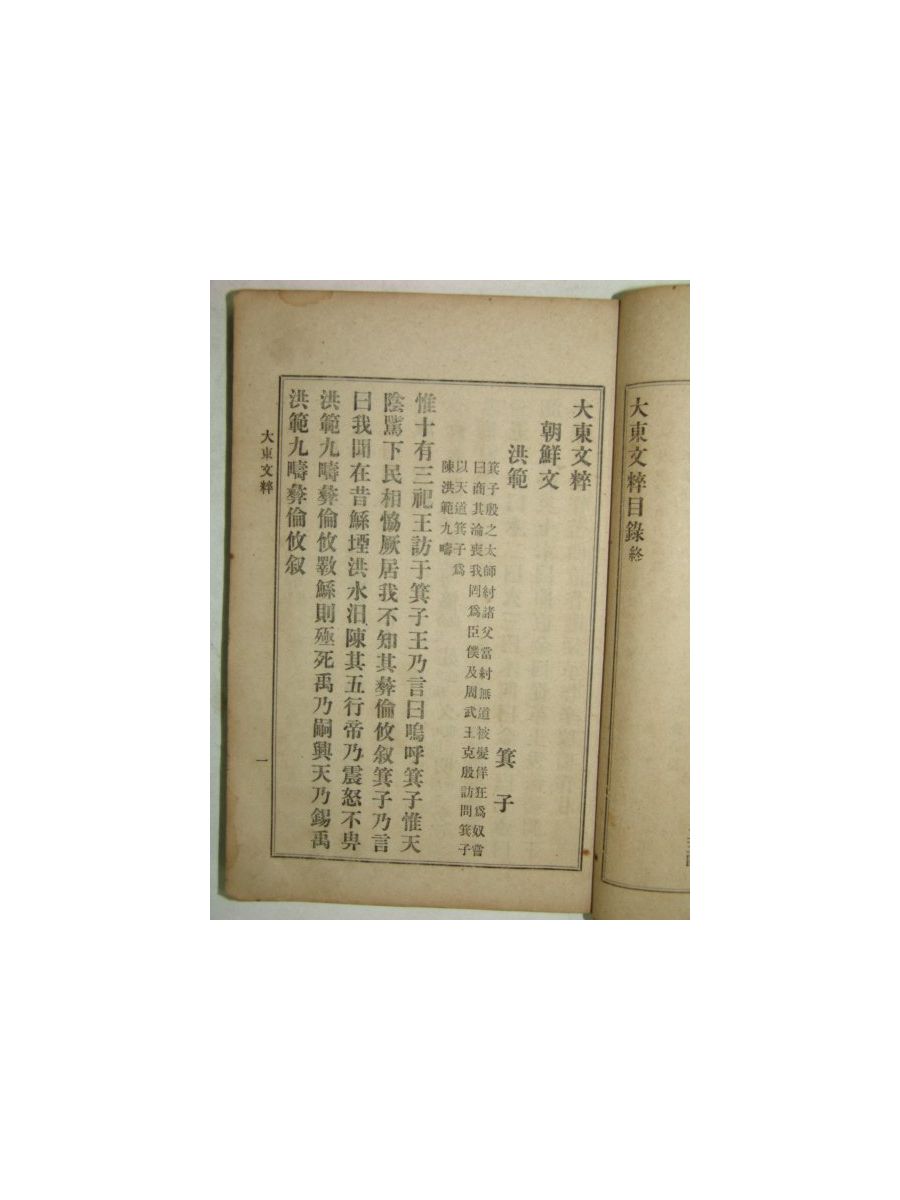 大東文粹目錄終
大東文粹
朝鮮文
洪範
箕子
箕子殷之太師紂諸父當紂無道被髮佯狂爲奴嘗
曰商其淪喪我罔爲臣僕及周武王克殷訪問箕子
以天道箕子爲
陳洪範九疇
惟十有三祀王訪于箕子王乃言曰嗚呼箕子惟天
陰騭下民相恊厥居我不知其彝倫攸叙箕子乃言
曰我聞在昔鯀堙洪水汨陳其五行帝乃震怒不畀
洪範九疇彝倫攸斁鯀則殛死禹乃嗣興天乃錫禹
洪範九疇彝倫攸叙
大東文粹
一